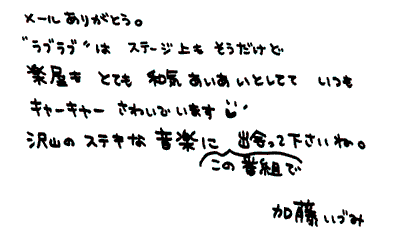 メールありがとう。
"ラブラブ"は ステージ上も そうだけど
楽屋も とても 和気あいあいとしてて いつも
キャーキャー さわいでいます
沢山の ステキな 音楽に 出会って下さいね。
この番組で
加藤いづみ